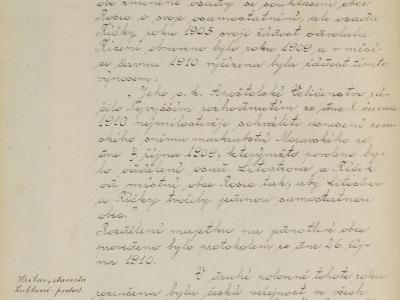 obě zmíněné osady se souhlasem obce
Rosic o svoje osamostatnění, ale osada
Říčky roku 1905 svoji žádost odvolala.
Řízení obnoveno bylo roku 1909 a v měsí-
ci červnu 1910 vyřízena byla žádost tímto
výnosem:
„Jeho c. k. Apoštolské Veličenstvo rá-
čilo Nejvyšším rozhodnutím ze dne 8. června
1910 nejmilostivěji schváliti usnesení zem-
ského sněmu markrabství Moravského ze
dne 7. října 1909, kterýmžto povoleno by-
lo oddělení osad Litostrova a Říček
od místní obce Rosic tak, aby Litostrov
a Říčky tvořily jedinou samostatnou
obec."
Rozdělení majetku na jednotlivé obce
provedeno bylo protokolem ze dne 26. říj-
na 1910.
Hribar, starosta
Lublaně - potvrz.
V druhé polovině tohoto roku
rozrušena byla česká veřejnost ve všech